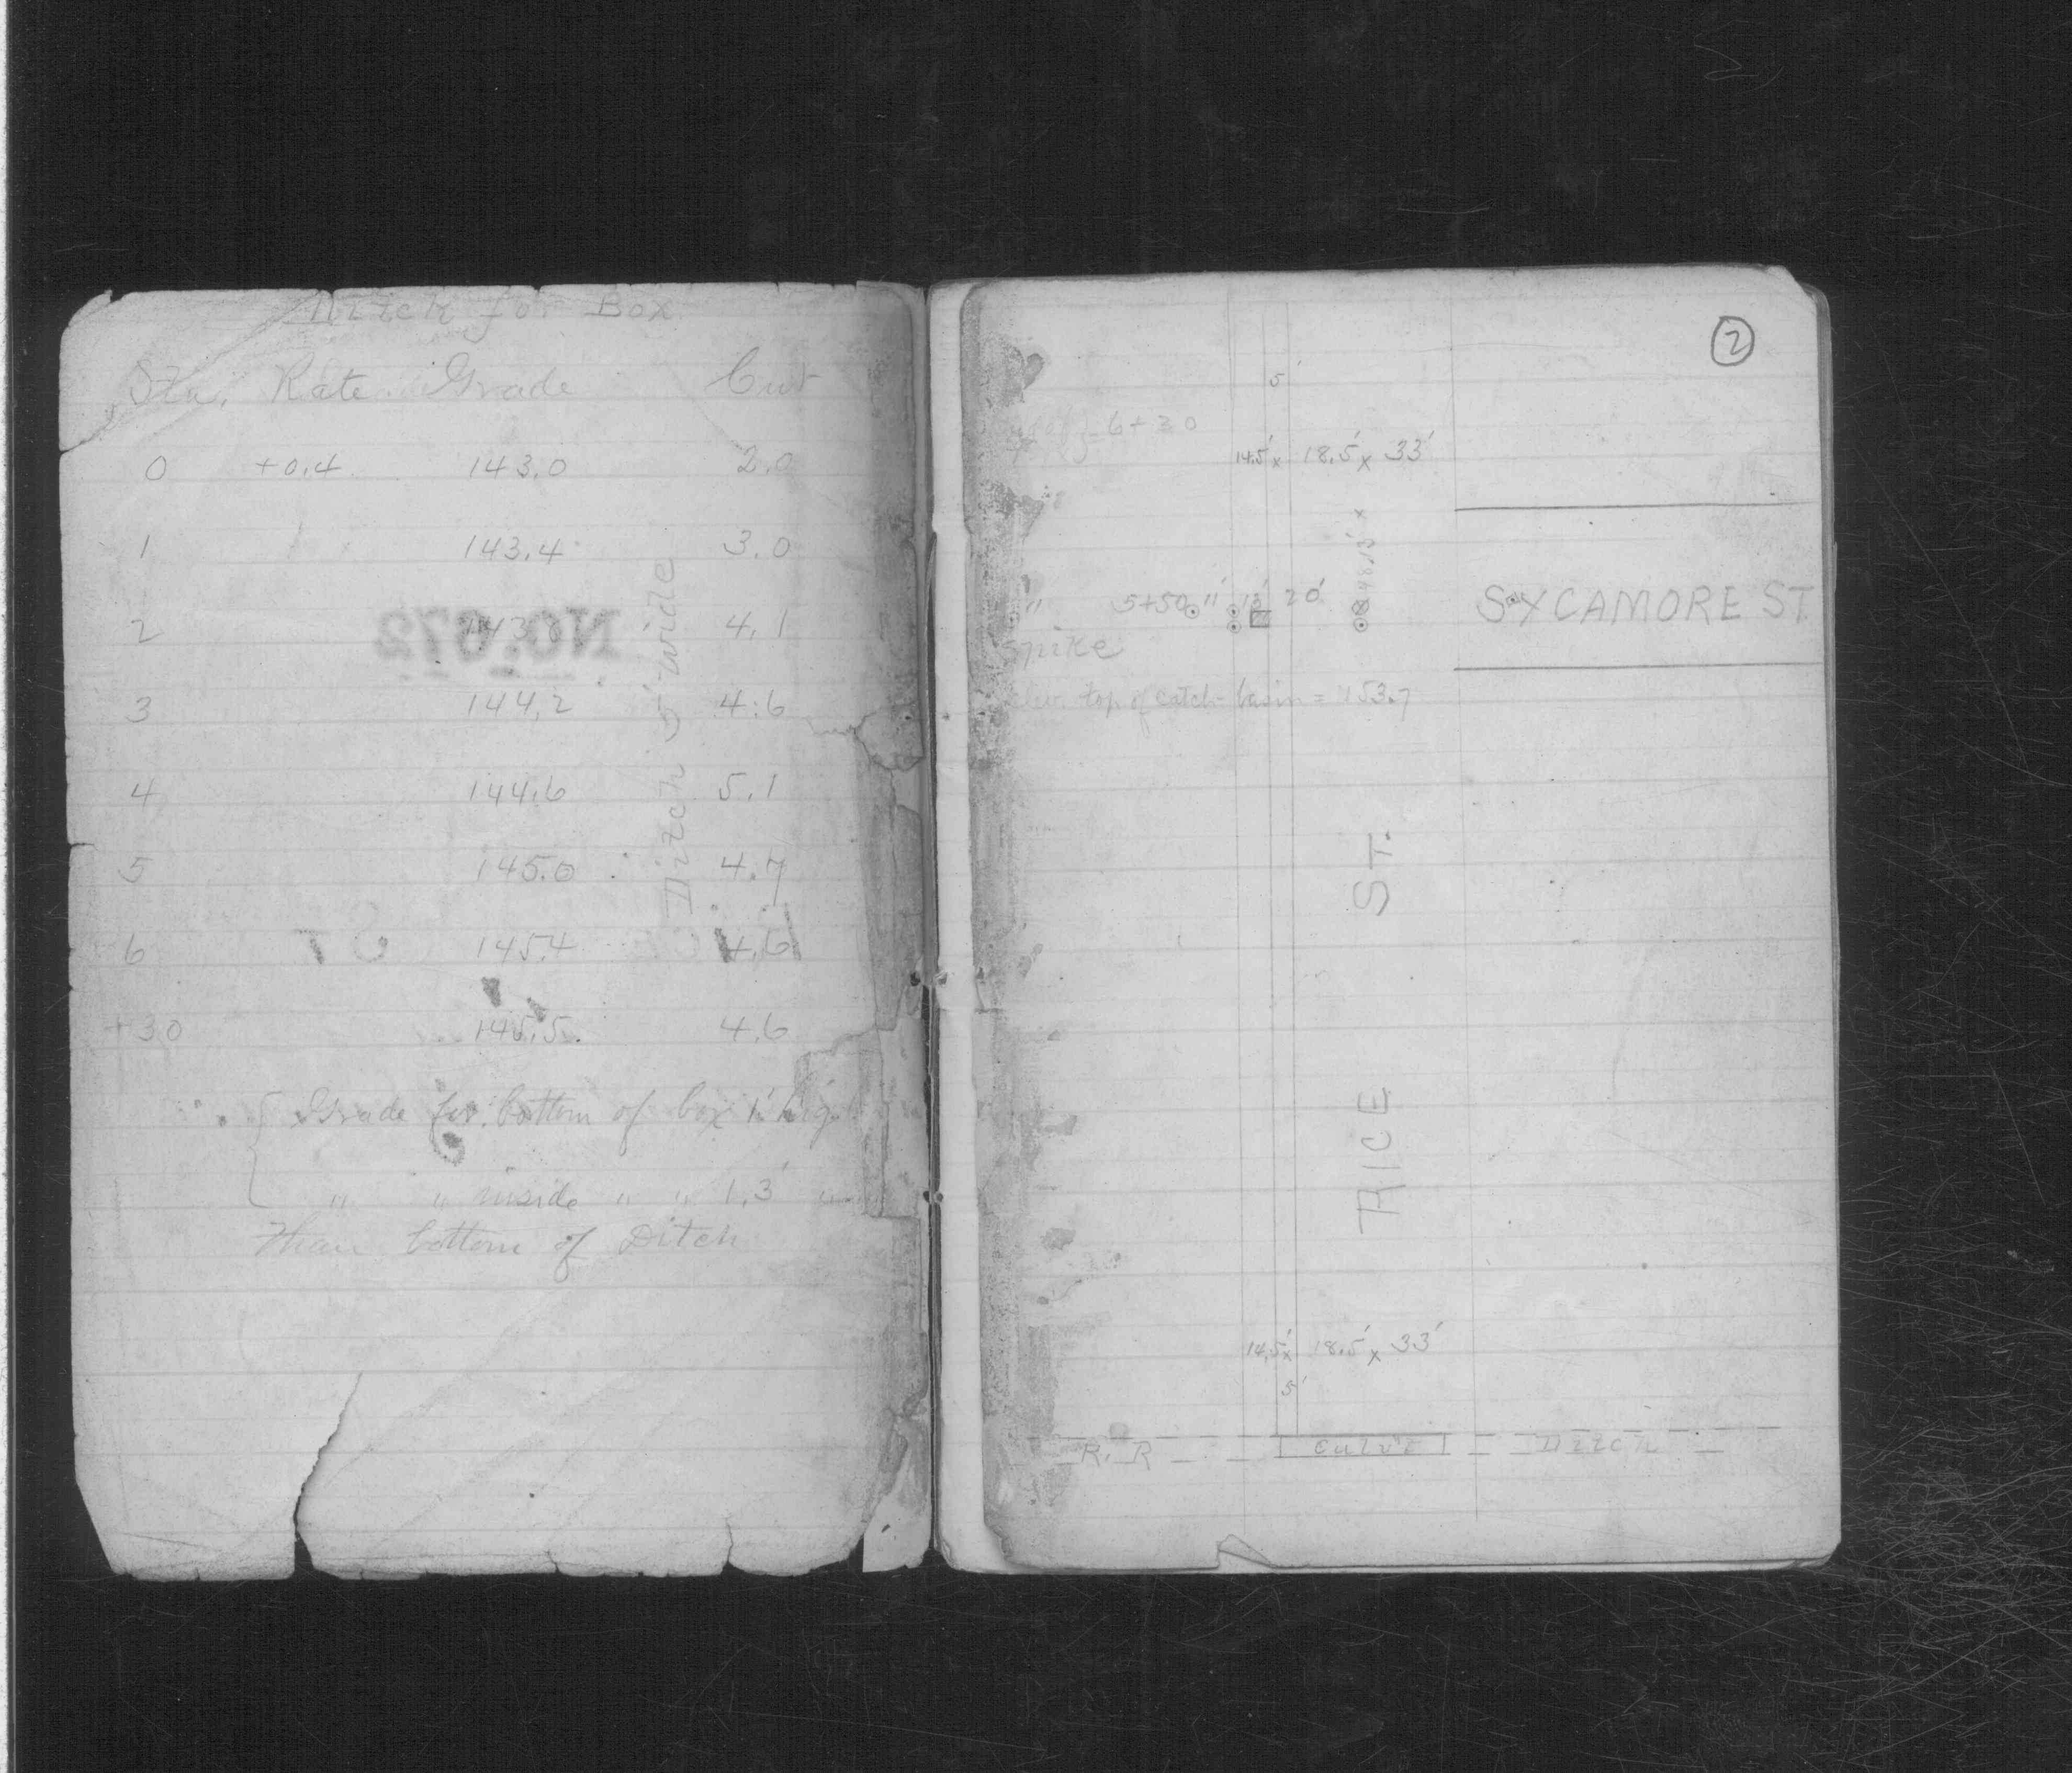 Ditch for Box
Sta. Rate Grade Cut
0 +0.4 143.0 2.0
1 143.4 3.0
2 143.8 4.1
3 144.2 4.6
4 144.6 5.1
5 145.0 4.7
6 145.4 4.6
+30 145.5 4.6
Ditch 5' wide
No. 672
Grade for bottom of box 1' high
" " inside " " 1.3' "
Than bottom of Ditch
2
5'
6+30
14.5' x 18.5' x 33'
" 5+50 11' 13' 20'
SYCAMORE ST.
Spike
Elev. top of catch-basin = 153.7
RICE ST.
14.5' x 18.5' x 33'
5'
R.R Culv't Ditch